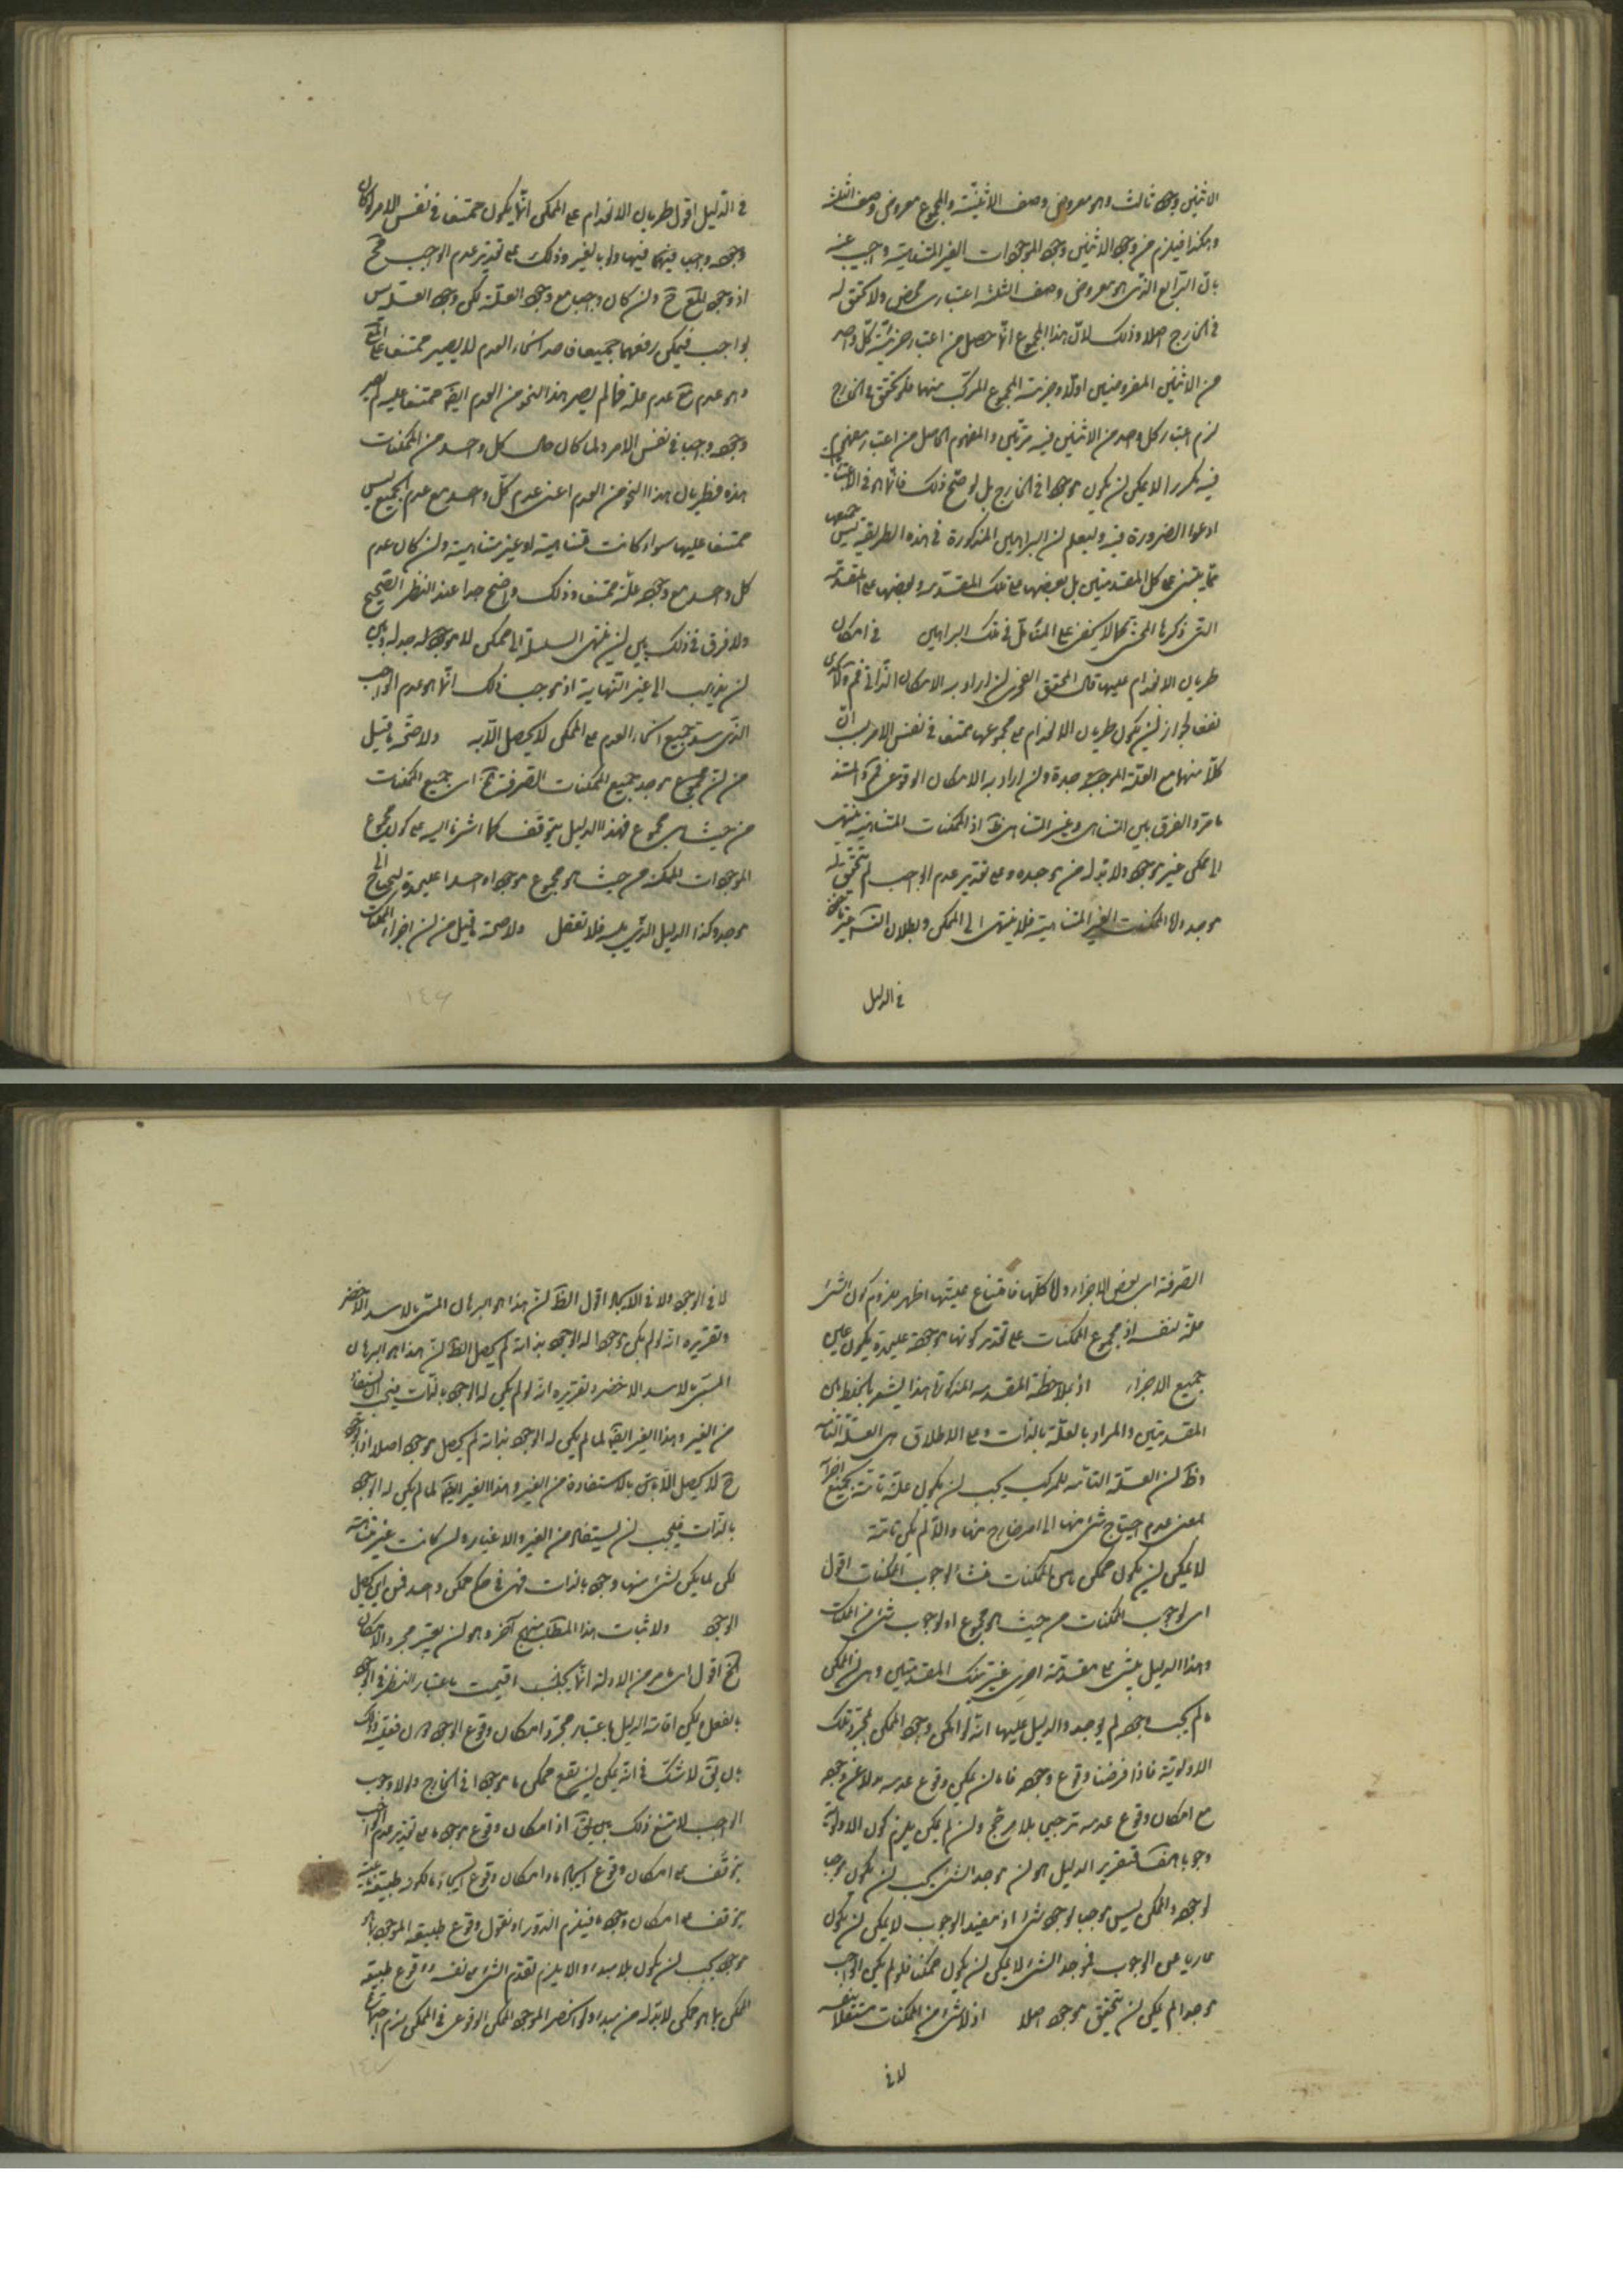 الاثنين وجه ثالث وهو معروض وصف الاثنينية والمجموع معروض وصف الثلثة
وهكذا فيلزم من وجود الاثنين وجود الموجودات الغير المتناهية واجيب عنه
بان الرابع الذى هو معروض وصف الثلثة اعتبارى محض ولا تحقق له
فى الخارج اصلا وذلك لان هذا المجموع انما حصل من اعتبار جزئية كل واحد
من الاثنين المفروضين اولا وجزئية المجموع المركب منهما فلو تحقق فى الخارج
لزم اعتبار كل واحد من الاثنين فيه مرتين والمفهوم الحاصل من اعتبار مفهوم
فيه مكررا لا يمكن ان يكون موجودا فى الخارج بل لوضح ذلك
ادعوا الضرورة فيه وليعلم ان البراهين المذكورة فى هذه الطريقة ليس جميعها
مما يبتنى على كل المقدمتين بل بعضها على تلك المقدمة وبعضها على المقدمة
التى ذكرها المحشى كما لا يخفى على المتأمل فى تلك البراهين فى امكان
طريان الانعدام عليها قال المحقق الفخرى ان اراد به الامكان الذاتى
نفعا لجواز ان يكون طريان الانعدام على مجموعها ممتنعا فى نفس الامر بسبب ان
كلا منها مع العلة الموجبة وان اراد به الامكان الوقوعى
ما مر والفرق بين المتناهى وغير المتناهى ظ اذ الممكنات المتناهية ينتهى
الى ممكن غير موجود ولا بد له من موجده وعلى تقدير عدم الواجب لم يتحقق له
موجد واما الممكنات الغير المتناهية فلا ينتهى الى الممكن وبطلان التسلسل
فى الدليل
فى الدليل اقول طريان الانعدام على الممكن انما يكون ممتنعا فى نفس الامر اذا كان
وجوده واجبا فيها ولو بالغير وذلك على تقدير عدم الواجب مح
اذ وجود المع ح وان كان واجبا مع وجود العلة لكن وجود العلة ليس
بواجب فيمكن رفعهما جميعا فاحد انحاء العدم لا يصير ممتنعا على المع
وهو عدم مع عدم علته فما لم يصر هذا النحو من العدم ايضا ممتنعا عليه لم يصر
وجوده واجبا فى نفس الامر ولما كان حال كل واحد من الممكنات
هذه فطريان هذا النحو من العدم اعنى عدم كل واحد مع عدم الجميع ليس
ممتنعا عليها سواء كانت متناهية او غير متناهية وان كان عدم
كل واحد مع وجود علته ممتنعا وذلك واضح جدا عند النظر الصحيح
ولا فرق فى ذلك بين ان ينتهى السلسلة الى ممكن لا موجد له وبين
ان يذهب الى غير النهاية اذ موجب ذلك انما هو عدم الواجب
الذى سد جميع انحاء العدم على الممكن لا يحصل الا به ولا صحة ما قيل
من ان مجموع موجد جميع الممكنات الصرفة اى جميع الممكنات
من حيث هى مجموع فهذا الدليل يتوقف كما اشرنا اليه على كون مجموع
الموجودات الممكنة من حيث هو مجموع موجودا واحدا عليحدة ليحتاج الى
موجد وكذا الدليل الذى يليه فلا تغفل ولا صحة ما قيل من ان اجزاء الممكنات
١٤٦
الصرفة اى بعض الاجزاء واما كلها فامتناع عليتها اظهر للزوم كون الشئ
علة لنفسه اذ مجموع الممكنات على تقدير كونها موجودة عليحدة يكون عين
جميع الاجزاء اذ بملاحظة المقدمة المذكورة هذا ليشعر بالخلط بين
المقدمتين والمراد بالعلة بالذات وعلى الاطلاق هى العلة التامة
وظ ان العلة التامة للمركب يجب ان يكون علة تامة لجميع اجزائه
بمعنى عدم احتياج شئ منها الى امر خارج عنها والا لم يكن تامة
لا يمكن ان يكون ممكن من الممكنات منشأ لوجوب الممكنات اقول
اى لوجوب الممكنات من حيث هو مجموع او لوجوب شئ من الممكنات
وهذا الدليل يبتنى على مقدمة اخرى غير تلك المقدمتين وهى ان الممكن
ما لم يجب وجوده لم يوجد والدليل عليها انه لو امكن وجود الممكن بمجرد تلك
الاولوية فاذا فرضنا وقوع وجوده فاما ان يمكن وقوع عدمه بدلا عن وجوده
مع امكان وقوع عدمه ترجيح بلا مرجح وان لم يمكن يلزم كون الاولوية
وجوبا هف فتقرير الدليل هو ان موجد الشئ يجب ان يكون موجبا
لوجوده والممكن ليس موجبا لوجود شئ اذ مفيد الوجوب لا يمكن ان يكون
عاريا عن الوجوب فموجد الشئ لا يمكن ان يكون ممكنا فلو لم يكن الواجب
موجودا لم يمكن ان يتحقق موجود اصلا اذ لا شئ من الممكنات مستقلا بنفسه
لا فى
لا فى الوجود ولا فى الايجاد اقول الظ ان هذا هو البرهان المسمى بالاسد الاخصر
وتقريره انه لو لم يكن موجودا له الوجود بذاته لم يحصل الظ ان هذا هو البرهان
المسمى بالاسد الاخصر وتقريره انه لو لم يكن له الوجود بالذات
من الغير وهذا الغير ايضا لما لم يكن له الوجود بذاته لم يحصل موجود اصلا اذ الوجود
ح لا يحصل الا بالاستفادة من الغير وهذا الغير ايضا لما لم يكن له الوجود
بالذات فيجب ان يستفاد من الغير والاغيار وان كانت غير متناهية
لكن لما لم يكن لشئ منها وجود بالذات فهى فى حكم ممكن واحد فمن اين يحصل
الوجود ولاثبات هذا المطلب منهج آخر وهو ان يعتبر مجرد الامكان
الخ اقول ما مر من الادلة انما اقيمت باعتبار النظر فى الوجود
بالفعل ويمكن اقامة الدليل باعتبار مجرد امكان وقوع الوجود
بان يق لا شك فى انه يمكن ان يقع ممكن ما موجودا فى الخارج ولولا وجوب
الواجب لامتنع ذلك اذ امكان وقوع موجود ما على تقدير عدم الواجب
يتوقف على امكان وقوع ايجاد ما وامكان وقوع ايجاد ما
يتوقف على امكان وجود ما فيلزم الدور او نقول وقوع طبيعة الموجود بما هو
موجود يجب ان يكون بلا مبدء والا يلزم تقدم الشئ على نفسه ووقوع طبيعة
الممكن بما هو ممكن لا بد له من مبدء ولو انحصر الموجود الممكن الوقوعى فى الممكن لزم